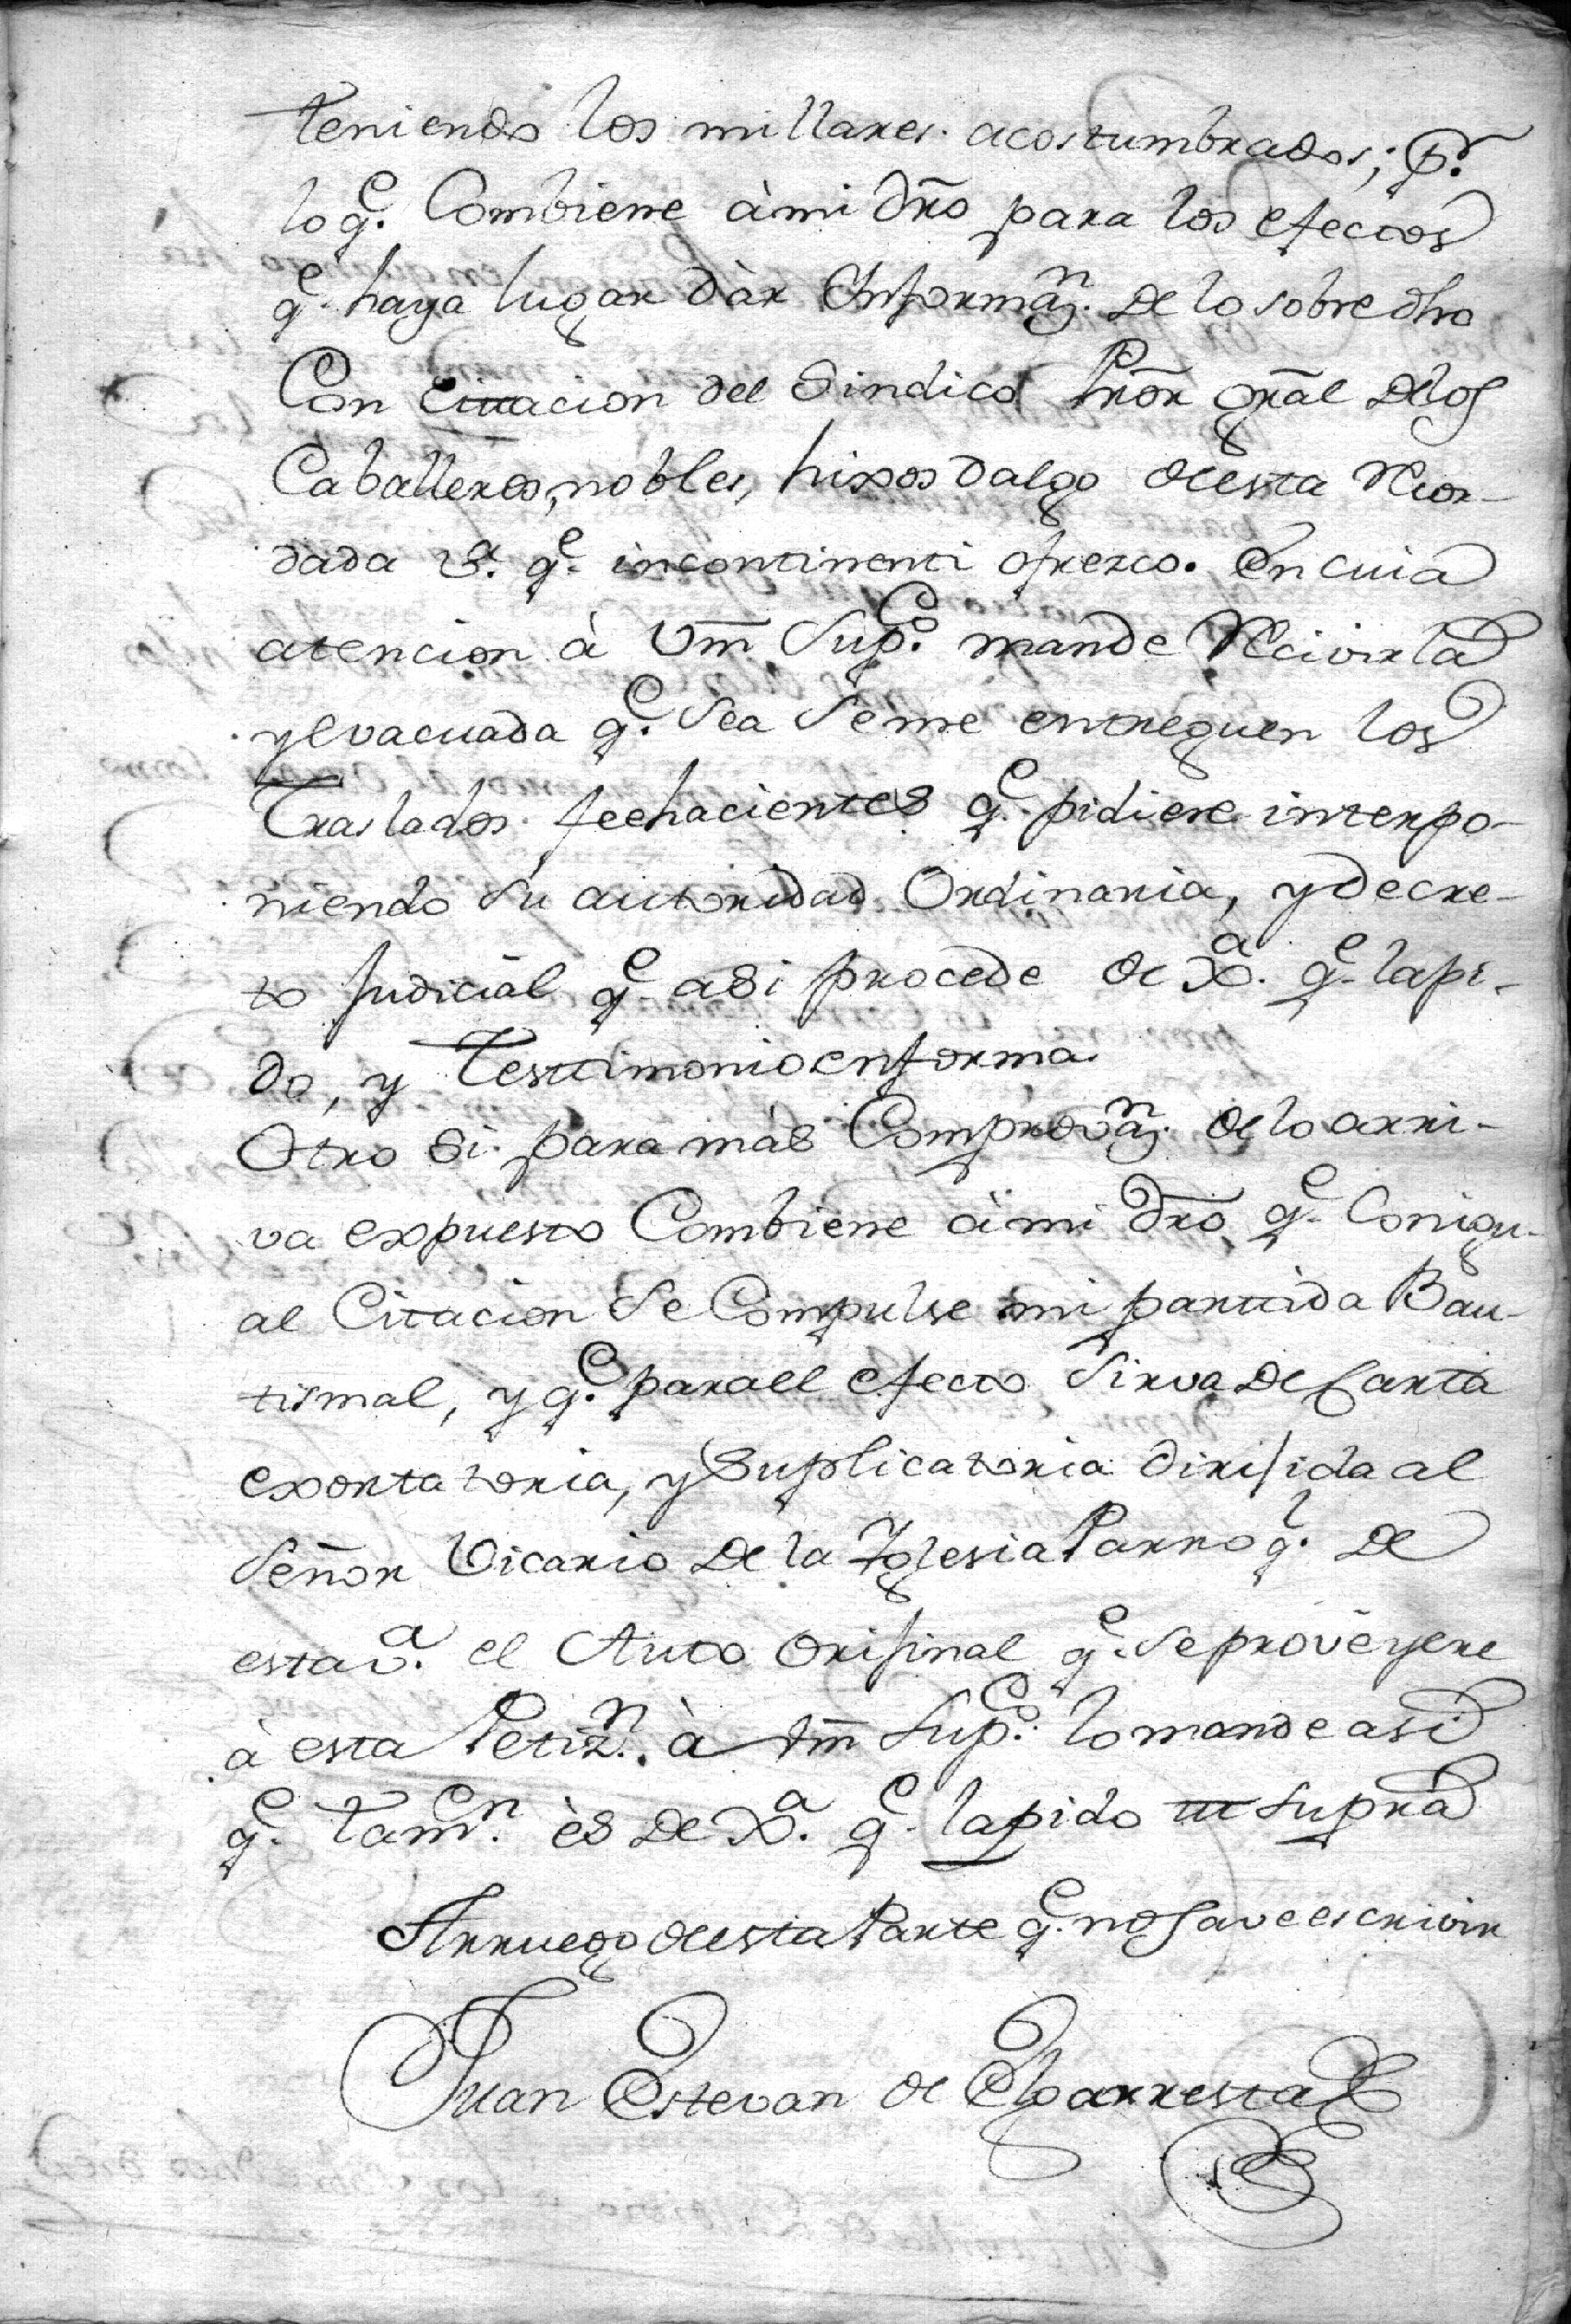 teniendo los millares acostumbrados; pr.
lo qe. Combiene à mi dro para los efectos
qe. haya lugar dàr Informazn. de lo sobre dho
Con citacion del Sindico Pror gral delos
Caballeros, nobles, hixos dalgo de esta Recor-
dada Va. qe. incontinenti ofrezco. En cuia
atencion à Vm Supco. mande Recivirla
y evacuada qe. sea se me entreguen los
Traslados feehacientes qe. pidiere interpo-
niendo su autoridad Ordinaria, y decre-
to Judicial qe. asi procede de Xa. qe. lapi-
do, y Testimonio en forma.
Otro si para màs Comprovazn. de lo arri-
va expuesto Combiene à mi dro qe. Con igu-
al Citacion se Compulse mi partida Bau-
tismal, y qe. para el efecto sirva de Carta
exortatoria, y suplicatoria dirijida al
Señor Vicario de la Iglesia Parroql. de
esta Va. el Auto orijinal qe. se proveyere
à esta Petizn. à Vm Supco. lo mande asi
qe. tamvn. ès de Xa. qe. lapido ut supra
A rruego de esta Parte qe. no save escrivir
Juan Estevan de Elgarresta